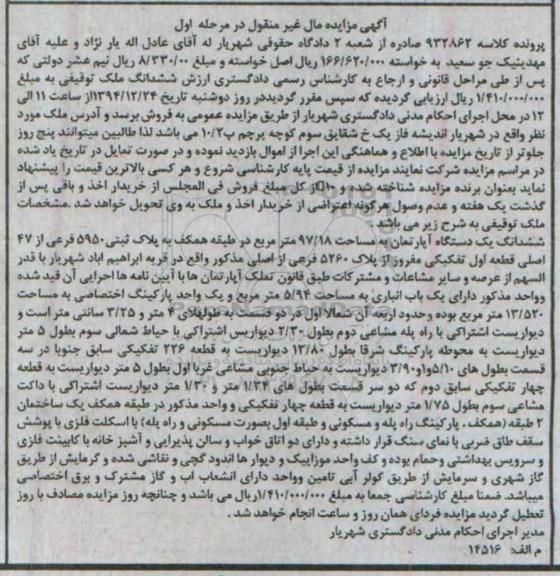 آگهی مزایده مال غیر منقول در مرحله اول
پرونده کلاسه ۹۳۲۸۶۲ صادره از شعبه ۲ دادگاه حقوقی شهریار له آقای عادل اله یار نژاد و علیه آقای
مهدینیک جو سعید به خواسته ۱۶۶/۶۲۰/۰۰۰ ریال اصل خواسته و مبلغ ۸/۳۳۰/۰۰ ریال نیم عشر دولتی که
پس از طی مراحل قانونی و ارجاع به کارشناس رسمی دادگستری ارزش ششدانگ ملک توقیفی به مبلغ
۱/۴۱۰/۰۰۰/۰۰۰ ریال ارزیابی گردیده که سپس مقرر گردیددر روز دوشنبه تاریخ ۱۳۹۴/۱۲/۲۴از ساعت ۱۱ الی
۱۲ در محل اجرای احکام مدنی دادگستری شهریار از طریق مزایده عمومی به فروش برسد و آدرس ملک مورد
نظر واقع در شهریار اندیشه فاز یک خ شقایق سوم کوچه پرچم پ۱۰/۲ می باشد لذا طالبین میتوانند پنج روز
جلوتر از تاریخ مزایده با اطلاع و هماهنگی این اجرا از اموال بازدید نموده و در صورت تمایل در تاریخ یاد شده
در مراسم مزایده شرکت نمایند مزایده از قیمت پایه کارشناسی شروع و هر کسی بالاترین قیمت را پیشنهاد
نماید بعنوان برنده مزایده شناخته شده و ۱۰٪از کل مبلغ فروش فی المجلس از خریدار اخذ و باقی پس از
گذشت یک هفته و عدم وصول هرگونه اعتراضی از خریدار اخذ و ملک به وی تحویل خواهد شد .مشخصات
ملک توقیفی به شرح زیر می باشد
ششدانگ یک دستگاه آپارتمان به مساحت ۹۷/۱۸ متر مربع در طبقه همکف به پلاک ثبتی۵۹۵۰ فرعی از ۴۷
اصلی قطعه اول تفکیکی مفروز از پلاک ۵۲۶۰ فرعی از اصلی مذکور واقع در قریه ابراهیم آباد شهریار با قدر
السهم از عرصه و سایر مشاعات و مشترکات طبق قانون تملک آپارتمان ها با آیین نامه ها اجرایی آن قید شده
وواحد مذکور دارای یک باب انباری به مساحت ۵/۹۴ متر مربع و یک واحد پارکینگ اختصاصی به مساحت
۱۳/۵۲۰ متر مربع بوده وحدود اربعه آن شمالا اول در دو قسمت به طولهلای ۴ متر و ۳/۲۵ سانتی متر است و
دیواریست اشتراکی با راه پله مشاعی دوم بطول ۲/۳۰ دیواریس اشتراکی با حیاط شمالی سوم بطول ۵ متر
دیواریست به محوطه پارکینگ شرقا بطول ۱۳/۸۰ دیواریست به قطعه ۲۲۶ تفکیکی سابق جنوبا در سه
قسمت بطول های ۵/۱۰و۱و۳/۹۰ دیواریست به حیاط جنوبی مشاعی غربا اول بطول ۵ متر دیواریست به قطعه
چهار تفکیکی سابق دوم که دو سر قسمت بطول های ۱/۳۴ متر و ۱/۳۰ متر دیواریست اشتراکی با داکت
مشاعی سوم بطول ۱/۷۵ متر دیواریست به قطعه چهار تفکیکی و واحد مذکور در طبقه همکف یک ساختمان
۲ طبقه (همکف ، پارکینگ راه پله و مسکونی و طبقه اول بصورت مسکونی و راه پله) با اسکلت فلزی با پوشش
سقف طاق ضربی با نمای سنگ قرار داشته و دارای دو اتاق خواب و سالن پذیرایی و آشپز خانه با کابینت فلزی
و سرویس بهداشتی وحمام بوده و کف واحد موزاییک و دیوار ها اندود گچی و نقاشی شده و گرمایش از طریق
گاز شهری و سرمایش از طریق کولر آبی تامین وواحد دارای انشعاب اب و گاز مشترک و برق اختصاصی
میباشد. ضمنا مبلغ کارشناسی جمعا به مبلغ ۱/۴۱۰/۰۰۰/۰۰۰ریال می باشد و چنانچه روز مزایده مصادف با روز
تعطیل گردید مزایده فردای همان روز و ساعت انجام خواهد شد .
مدیر اجرای احکام مدنی دادگستری شهریار
م الف: ۱۴۵۱۶